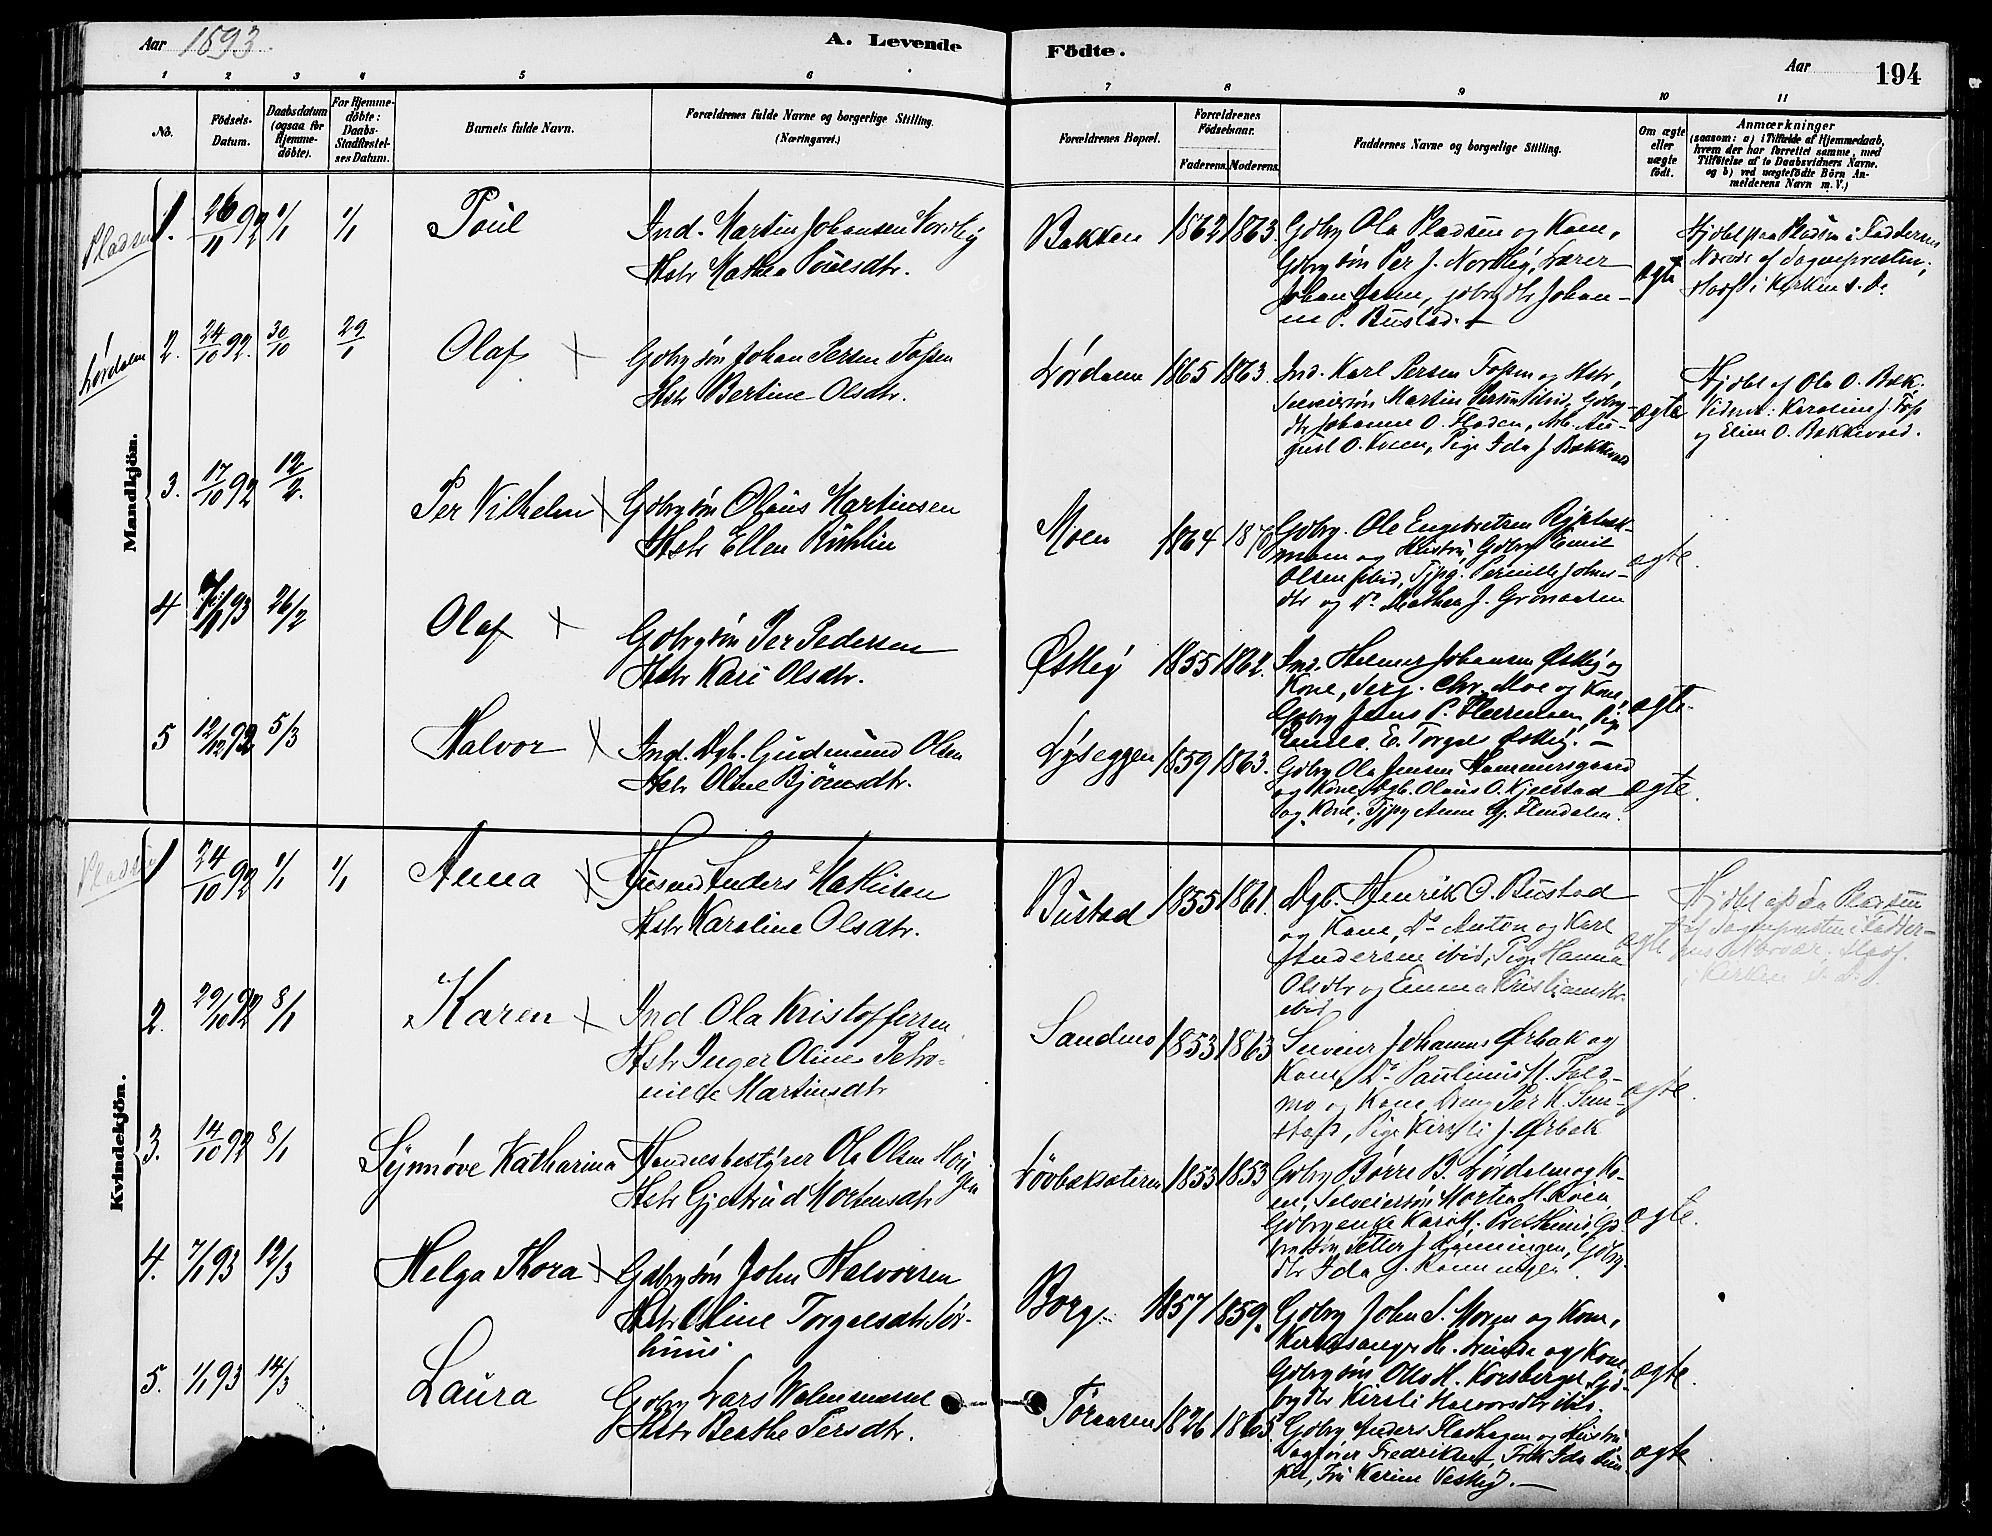 Aar 1893.
A. Levende
Födte.
Aar
194
1 2 3 4 5 6 7 8 9 10 11
No.
Födsels-
Datum.
Daabsdatum
(ogsaa for
Hjemme-
döbte).
For Hjemme-
döbte:
Daabs-
Stadfæstel-
ses Datum.
Barnets fulde Navn.
Forældrenes fulde Navne og borgerlige Stilling.
(Næringsvei.)
Forældrenes Bopæl.
Forældrenes
Födselsaar.
Faderens. Moderens.
Faddernes Navne og borgerlige Stilling.
Om ægte
eller
uægte
födt.
Anmærkninger
(saasom: a) i Tilfælde af Hjemmedaab,
hvem der har forrettet samme, med
Tilföielse af to Daabsvidners Navne,
og b) ved uægtefödte Börn An-
melderens Navn m. V.)
Mandkjön.
Pladsen
1. 26/11 92 1/1 1/1 Poul
Ind. Martin Johansen Nordlig
Hstr Mathea Poulsdtr.
Bakken 1862 1863.
Gdbr Ola Pladsen og Kone,
Gdbrg søn Per J. Nordlig, Lærer
Johan, gdbr dtr Johan-
ne P. Bustad.
ægte
Hjdbt paa Pladsen i Faddernes
Nærvær af Sognepresten;
Stadf i Kirken s. D.
Lørdalen
2. 24/10 92. 30/10 29/1 Olaf ×
Gdbrg søn Johan Persen
Hstr Bertine Olsdtr.
Lørdalen 1865 1863.
Ind. Karl Persen og Hstr,
Selveiersøn Martin Gdbr-
dtr Johanne O. Floden, Arb. Au-
gust O. Pige Ida J. Bækkevold
ægte
Hjdbt af Ola O. Bæk.
Vidner: Karoline J.
og Eline O. Bækkevold.
3. 17/10 92 12/2. Per Vilhelm ×
Gdbrg søn Olaus Martinsen
Hstr Ellen
Moen 1864 18
Gdbrg. Ole Engebretsen
og Hustru, Gdbrg Emil
Olsen ibid, Tjpg. Pernille Johns-
dtr og Do Mathea J. Grønaasen
ægte.
4 93 26/2 Olaf ×
Gdbrg søn Per Pedersen
Hstr Kari Olsdtr.
Østlig 1855 1862.
Ind. Helmer Johansen Østlig og
Kone, Serg. Chr. Moe og Kone,
Gdbrg Jens P. Pig
E. Torgals Østlig. –
ægte.
5 12/12 92 5/3 Halvor ×
Ind. Dgb. Gudmund Olsen
Hstr Oline Bjørnsdtr.
Lyseggen 1859 1863.
Gdbrg Ola Jensen Hammersgaard
og Kone, Dgb. Olaus O. Kjelstad
og Kone, Tjpg Anne Gj. Flendalen.
ægte.
Kvindekjön.
Pladsen
1 24/10 92 1/1 1/1 Anna ×
Husmd Anders Mathisen
Hstr Karoline Olsdtr.
Bustad 1855 1861.
Dgb. Henrik O. Bustad
og Kone, Do Anton og Karl
Andersen ibid, Pige Hanna
Olsdtr og Emma Kristiansdtr.
ibid
ægte
Hjdbt paa Pladsen
af Sognepresten i Fadder-
nes Nærvær. Stadf.
i Kirken s. D.
2. 29/10 92 8/1 Karen ×
Ind Ola Kristoffersen
Hstr Inger Oline Petro-
nille Martinsdtr
Sandmo 1853 1863
Selveier Johannes Ørbak og
Kone, Do Paulinus H. Fald-
mo og Kone, Dreng Per K.
Pige Kirsti J. Ørbak
ægte.
3. 14/10 92 8/1 Synnøve Katharina
Handelsbestyrer Ola Olsen Hougen
Hstr Gjertrud Mortensdtr
Løvbæksæteren 1853 1853
Gdbrg Børre B. Lørdalen og Ko-
ne, Selveiersøn Morten H. Moen
Gdbrg enke Kari H. Presthus Gd-
br søn Petter J. Rønningen, Gdbrg-
dtr Ida J. Rønningen
ægte.
4. 7/1 93 12/3 Helga Thora ×
Gdbrg søn John Halvorsen
Hstr Oline Torgalsdtr Sør-
huus.
Borg 1857 1859.
Gdbrg John S. Moren og Kone,
Kirkesanger H. Linde og Kone
Gdbrg søn Otto H. Korsberget Gd-
brg dtr Kirsti Halvorsdtr ibid.
ægte.
5. 1/1 93 14/3 Laura
Gdbrg Lars
Hstr Beathe Persdtr.
Tøraasen 1826 1865.
Gdbrg Anders Fladhagen og Hustru
Fredriksen, Frk Ida
Fru Karine Vestlig. –
ægte